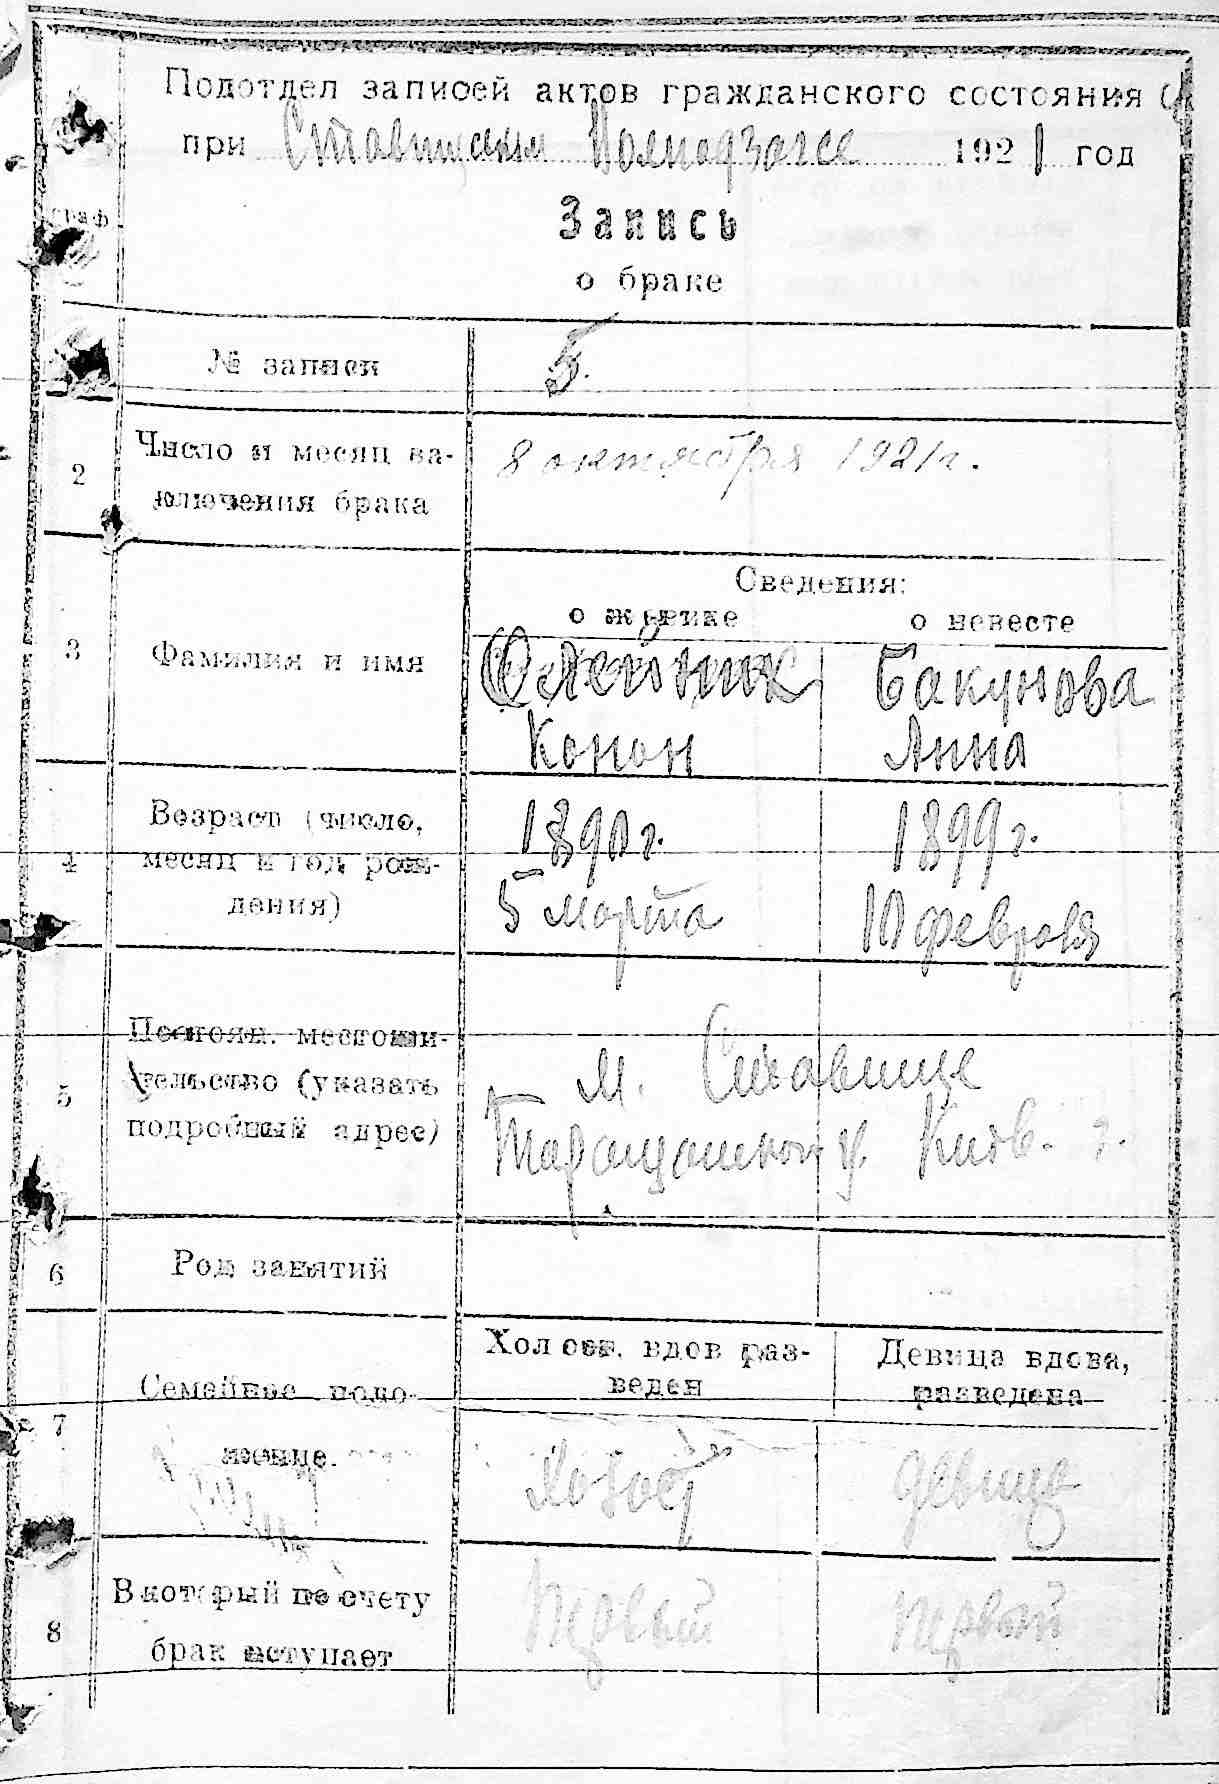 Подотдел записей актов гражданского состояния
при Ставищанским 1921 год
граф
Запись
о браке
№ записи 5.
2 Число и месяц за-
ключения брака
8 октября 1921 г.
Сведения:
о женихе о невесте
3 Фамилия и имя
Олейник Бакунова
Конон Анна
4 Возраст (число,
месяц и год рож-
дения)
1890 г. 1899 г.
5 марта 10 февраля
5 Постоян. местожи-
тельство (указать
подробный адрес)
м. Ставище
Таращанского у. Киев. г.
6 Род занятий
Холост. вдов раз-
веден
Девица вдова,
разведена
7 Семейное поло-
жение.
Холост девица
8 В который по счету
брак вступает
Первый Первый